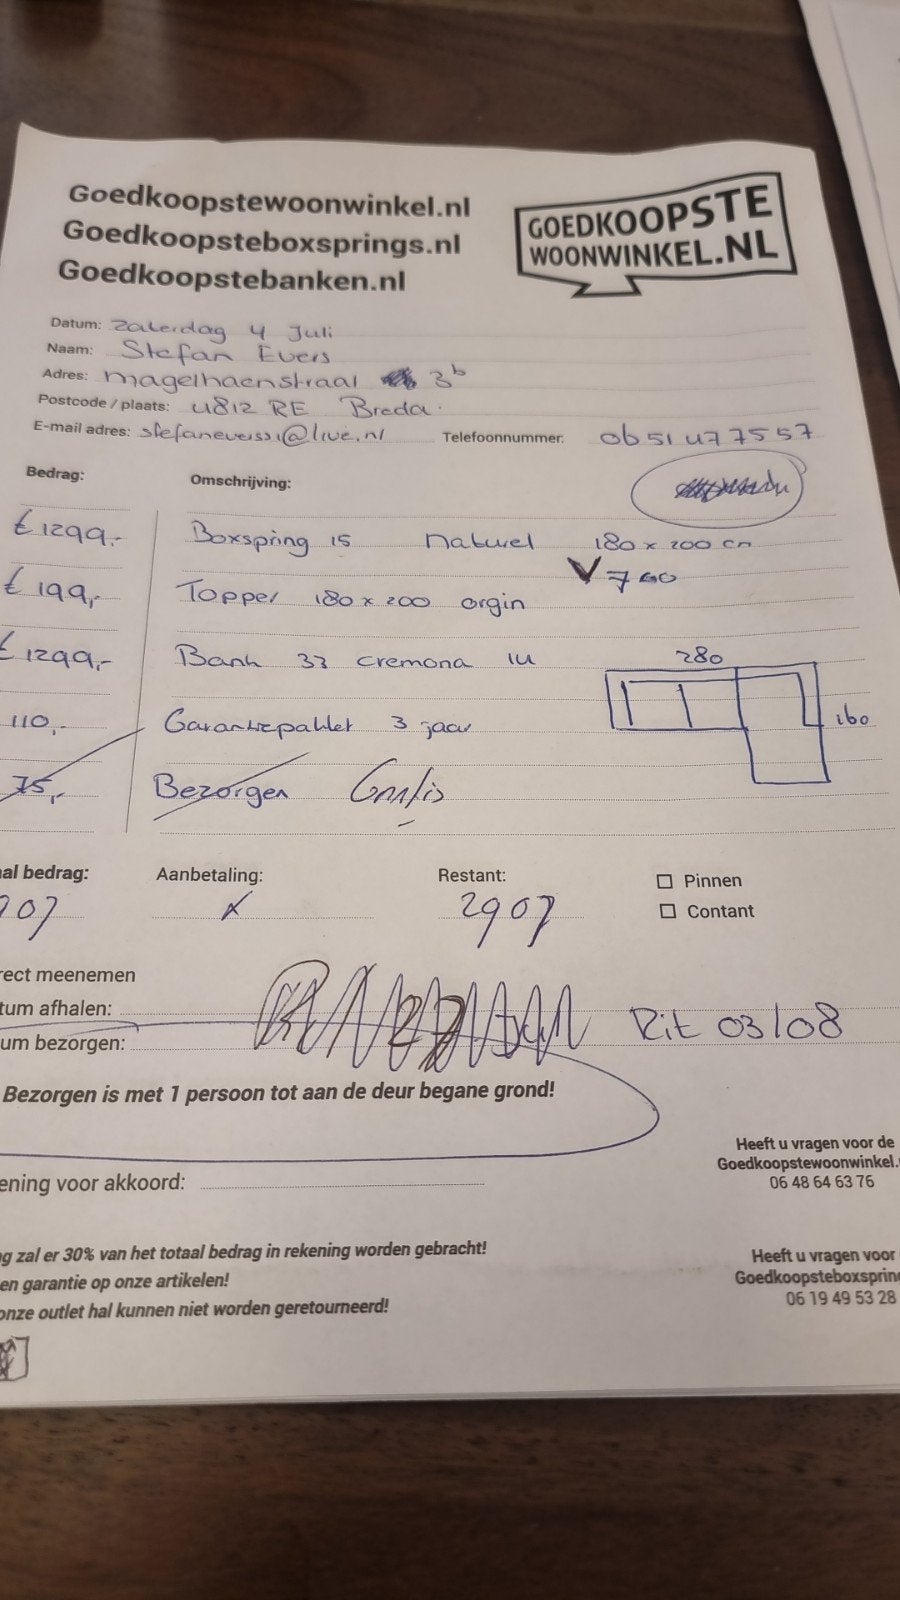 Goedkoopstewoonwinkel.nl
Goedkoopsteboxsprings.nl
Goedkoopstebanken.nl
GOEDKOOPSTE
WOONWINKEL.NL
Datum: Zaterdag 4 Juli
Naam: Stefan Evers
Adres: magelhaenstraat 3b
Postcode / plaats: 4812 RE Breda.
E-mail adres: Telefoonnummer: 0651477557
Bedrag: Omschrijving:
€ 1299,- Boxspring 15 naturel 180 x 200 cm
€ 199,- Topper 180 x 200 orgin
€ 1299,- Bank 33 cremona 280
110,- Garantiepakket 3 jaar 160
75,- Bezorgen Gratis
al bedrag: Aanbetaling: Restant: Pinnen
907 x 2907 Contant
rect meenemen
tum afhalen: Rit 03/08
um bezorgen:
Bezorgen is met 1 persoon tot aan de deur begane grond!
Heeft u vragen voor de
Goedkoopstewoonwinkel.
06 48 64 63 76
ening voor akkoord:
g zal er 30% van het totaal bedrag in rekening worden gebracht!
en garantie op onze artikelen!
onze outlet hal kunnen niet worden geretourneerd!
Heeft u vragen voor
Goedkoopsteboxsprin
06 19 49 53 28